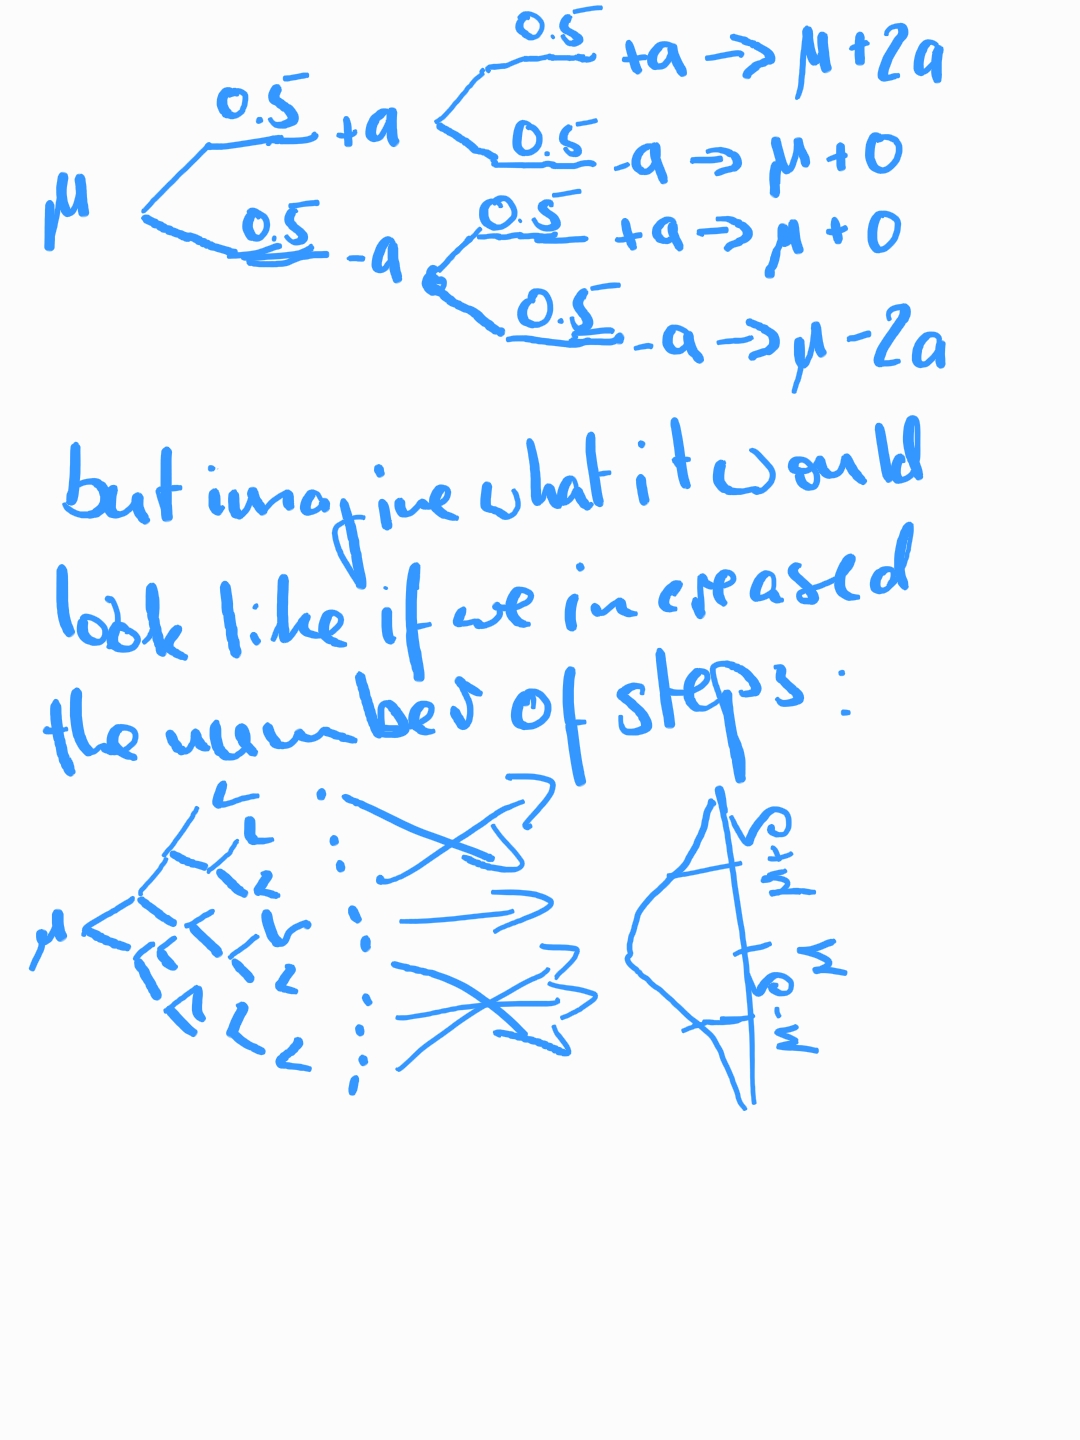 0.5 +a → μ+2a
0.5 +a
0.5 -a → μ+0
μ
0.5 -a
0.5 +a → μ+0
0.5 -a → μ-2a
but imagine what it would
look like if we increased
the number of steps:
μ
μ+σ
μ
μ-σ